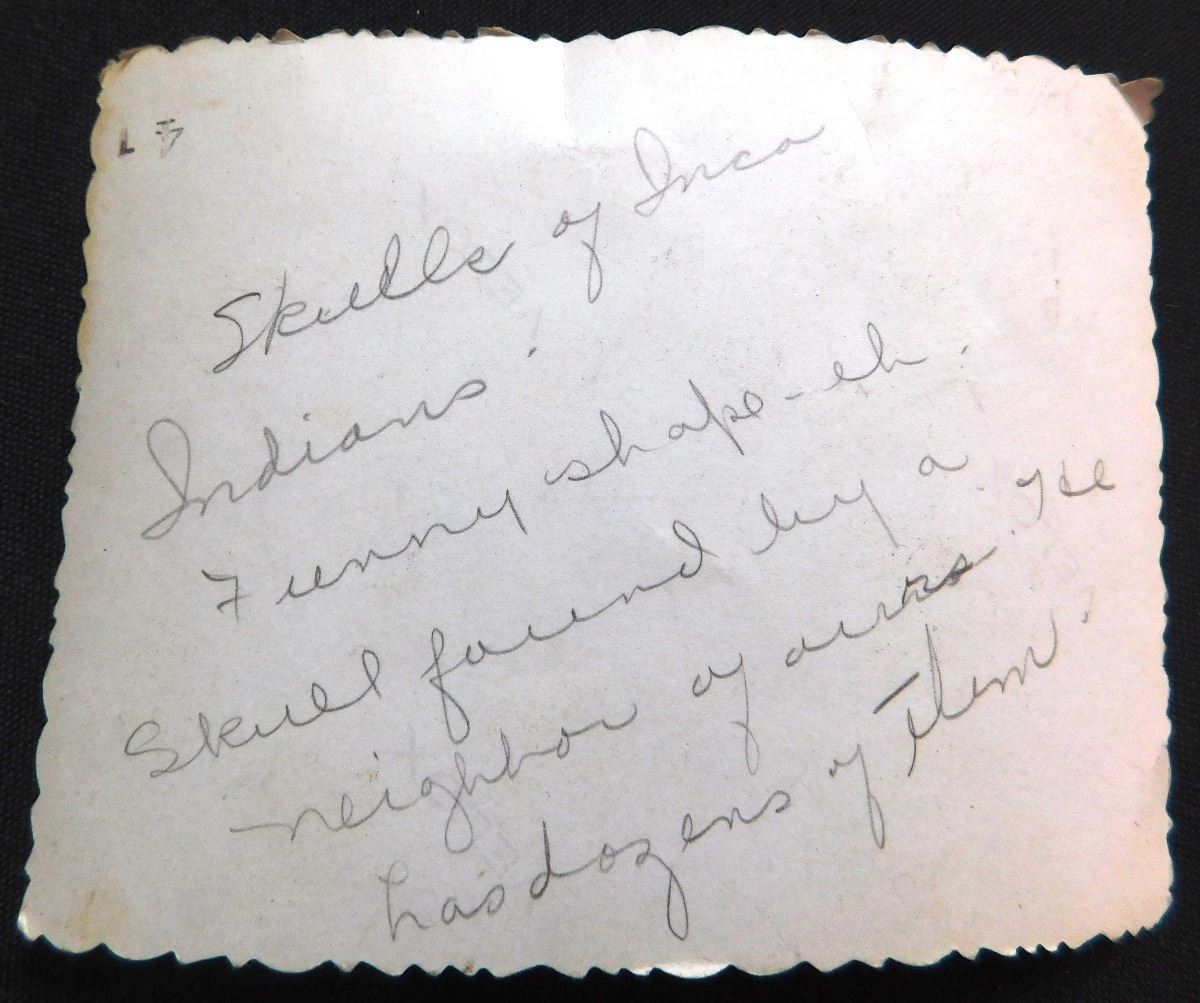 Skulls of Inca
Indians.
Funny shape-eh.
Skull found by a
neighbor of ours. He
has dozens of them.